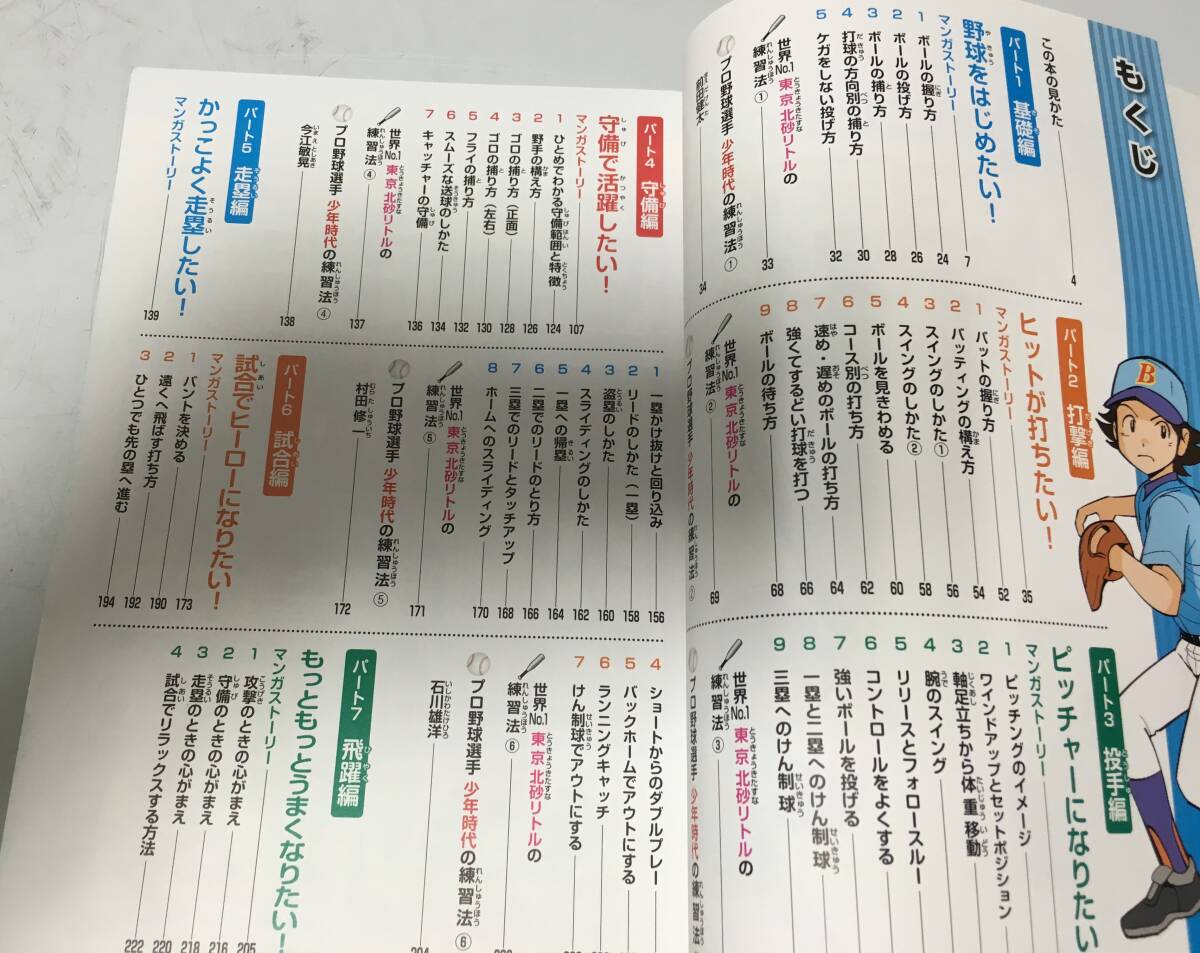 もくじ
この本の見かた 4
パート1 基礎編
野球をはじめたい!
マンガストーリー 7
1 ボールの握り方 24
2 ボールの投げ方 26
3 ボールの捕り方 28
4 打球の方向別の捕り方 30
5 ケガをしない投げ方 32
世界No.1 東京北砂リトルの
練習法① 33
プロ野球選手 少年時代の練習法①
前田健太 34
パート2 打撃編
ヒットが打ちたい!
マンガストーリー 35
1 バットの握り方 52
2 バッティングの構え方 54
3 スイングのしかた① 56
4 スイングのしかた② 58
5 ボールを見きわめる 60
6 コース別の打ち方 62
7 速め・遅めのボールの打ち方 64
8 強くてするどい打球を打つ 66
9 ボールの待ち方 68
世界No.1 東京北砂リトルの
練習法② 69
プロ野球選手 少年時代の練習法②
パート3 投手編
ピッチャーになりたい
マンガストーリー
1 ピッチングのイメージ
2 ワインドアップとセットポジション
3 軸足立ちから体重移動
4 腕のスイング
5 リリースとフォロースルー
6 コントロールをよくする
7 強いボールを投げる
8 一塁と二塁へのけん制球
9 三塁へのけん制球
世界No.1 東京北砂リトルの
練習法③
プロ野球選手 少年時代の練習法
パート4 守備編
守備で活躍したい!
マンガストーリー 107
1 ひとめでわかる守備範囲と特徴 124
2 野手の構え方 126
3 ゴロの捕り方(正面) 128
4 ゴロの捕り方(左右) 130
5 フライの捕り方 132
6 スムーズな送球のしかた 134
7 キャッチャーの守備 136
世界No.1 東京北砂リトルの
練習法④ 137
プロ野球選手 少年時代の練習法④
今江敏晃 138
パート5 走塁編
かっこよく走塁したい!
マンガストーリー 139
1 一塁かけ抜けと回り込み 156
2 リードのしかた(一塁) 158
3 盗塁のしかた 160
4 スライディングのしかた 162
5 一塁への帰塁 164
6 二塁でのリードのとり方 166
7 三塁でのリードとタッチアップ 168
8 ホームへのスライディング 170
世界No.1 東京北砂リトルの
練習法⑤ 171
プロ野球選手 少年時代の練習法⑤
村田修一 172
パート6 試合編
試合でヒーローになりたい!
マンガストーリー 173
1 バントを決める 190
2 遠くへ飛ばす打ち方 192
3 ひとつでも先の塁へ進む 194
4 ショートからのダブルプレー
5 バックホームでアウトにする
6 ランニングキャッチ
7 けん制球でアウトにする
世界No.1 東京北砂リトルの
練習法⑥
プロ野球選手 少年時代の練習法⑥
石川雄洋
パート7 飛躍編
もっともっとうまくなりたい!
マンガストーリー 205
1 攻撃のときの心がまえ 216
2 守備のときの心がまえ 218
3 走塁のときの心がまえ 220
4 試合でリラックスする方法 222
B